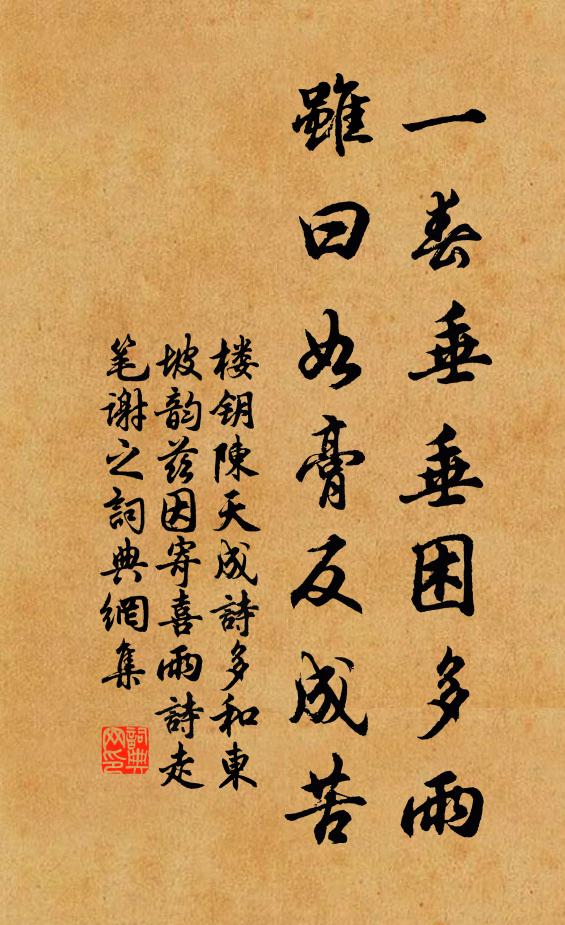 一春垂垂困多雨
雖曰如膏反成苦
楼钥陳天成詩多和東
坡韵兹因寄喜雨詩走
笔谢之詞典網集
詞典
网印